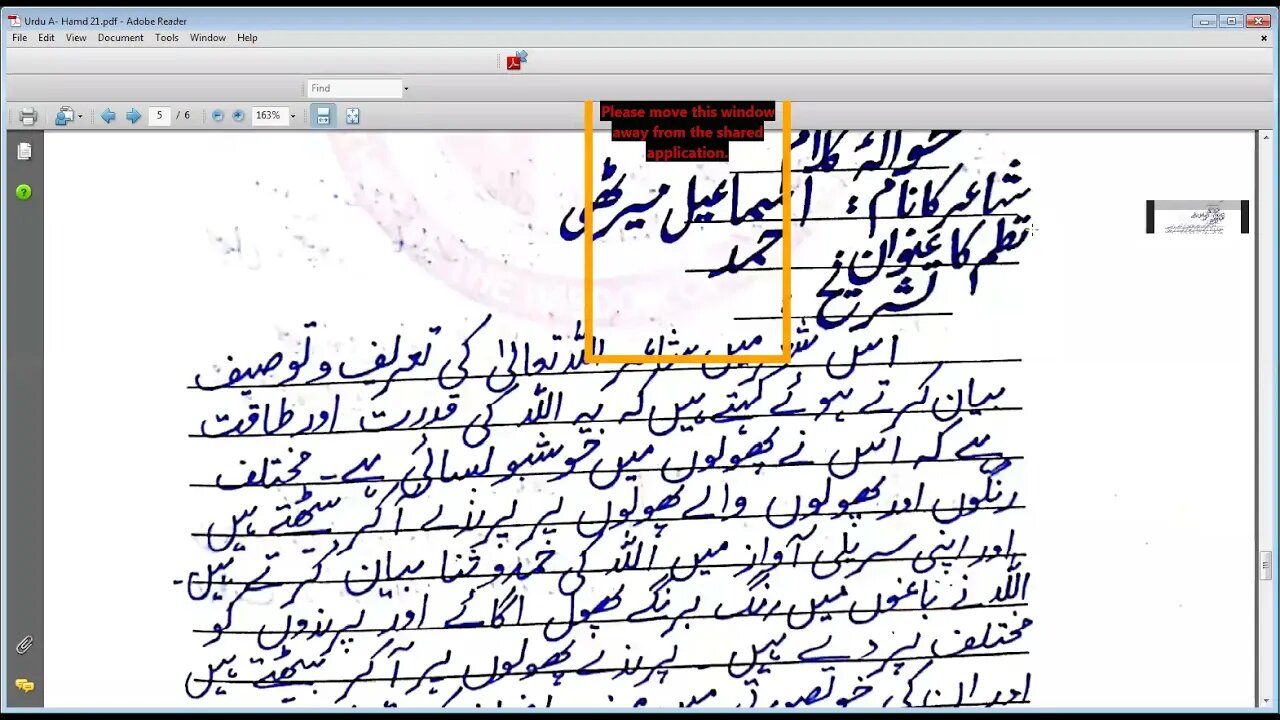 Urdu A- Hamd 21.pdf - Adobe Reader
File Edit View Document Tools Window Help
Find
5 / 6 163%
Please move this window
away from the shared
application.
حوالۂ کلام
شاعر کا نام : اسماعیل میرٹھی
نظم کا عنوان حمد
تشریح
اس شعر میں شاعر اللہ تعالیٰ کی تعریف و توصیف
بیان کرتے ہوئے کہتے ہیں کہ یہ اللہ کی قدرت اور طاقت
ہے کہ اس نے پھولوں میں خوشبو بسائی ہے۔ مختلف
رنگوں اور پھولوں والے پھولوں پر پرندے آکر بیٹھتے ہیں
اور اپنی سریلی آواز میں اللہ کی حمد و ثنا بیان کرتے ہیں۔
اللہ نے باغوں میں رنگ برنگے پھول اگائے اور پرندوں کو
مختلف پر دے ہیں۔ پرندے پھولوں پر آکر بیٹھتے ہیں
اور ان کی خوبصورتی میں